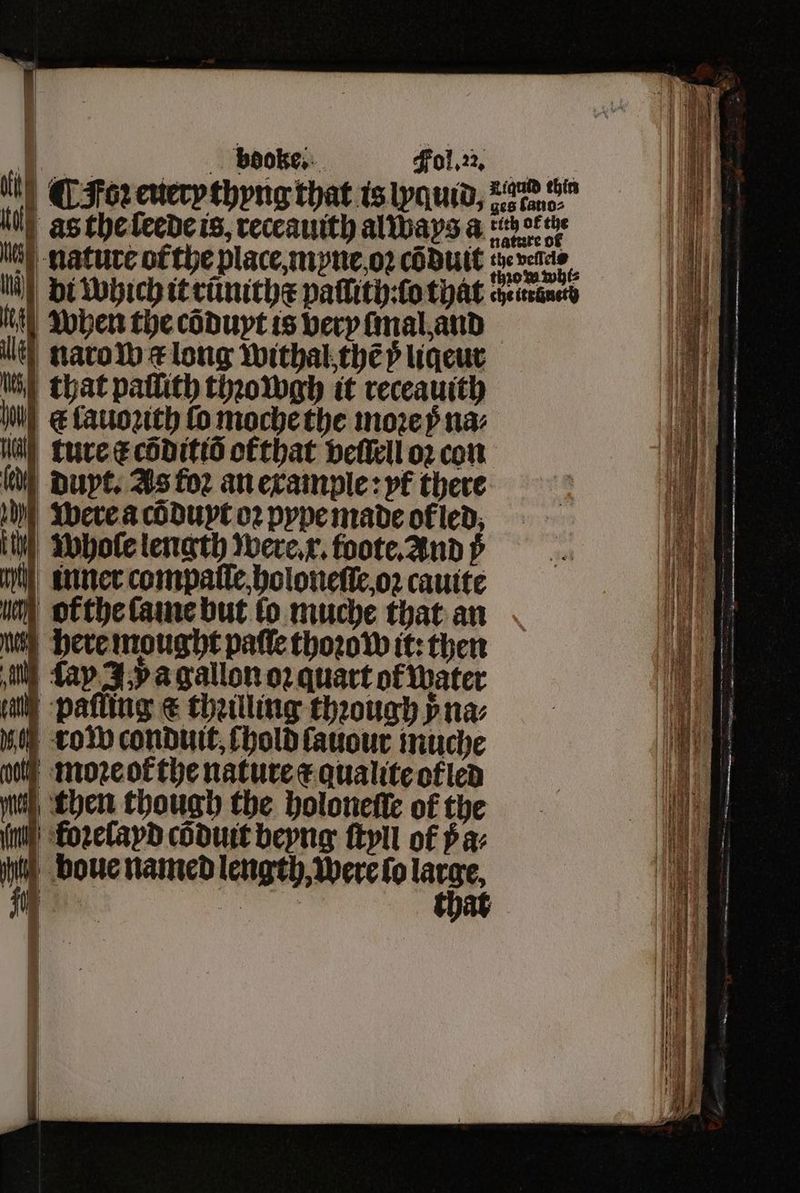 booke. Fol.22.
¶ For euery thyng that is lyquid,
as the seede is, receauith allways a
nature of the place, myne, or cõduit
bi which it rũnith & passith: so that
when the cõduyt is very smal, and
narow & long withal, thẽ þͤ liqeur
that passith throwgh it receauith
& sauorith so moche the more þͤ na⸗
ture & cõditiõ of that vessell or con
duyt. As for an example: yf there
were a cõduyt or pype made of led,
whose length were .x. foote. And þͤ
inner compasse, holonesse, or cauite
of the same but so muche that an
here mought passe thorow it: then
say I, þͭ a gallon or quart of water
passing & thrilling through þͤ na⸗
row conduit, shold sauour muche
more of the nature & qualite of led
then though the holonesse of the
foresayd cõduit beyng styll of þͤ a⸗
boue named length, were so large,
that
Liquid thin
ges sauo⸗
rith of the
nature of
the vessels
throw whi⸗
che it rũneth